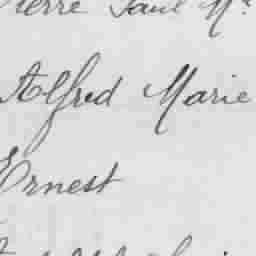 Pierre Paul M
Alfred Marie
Ernest